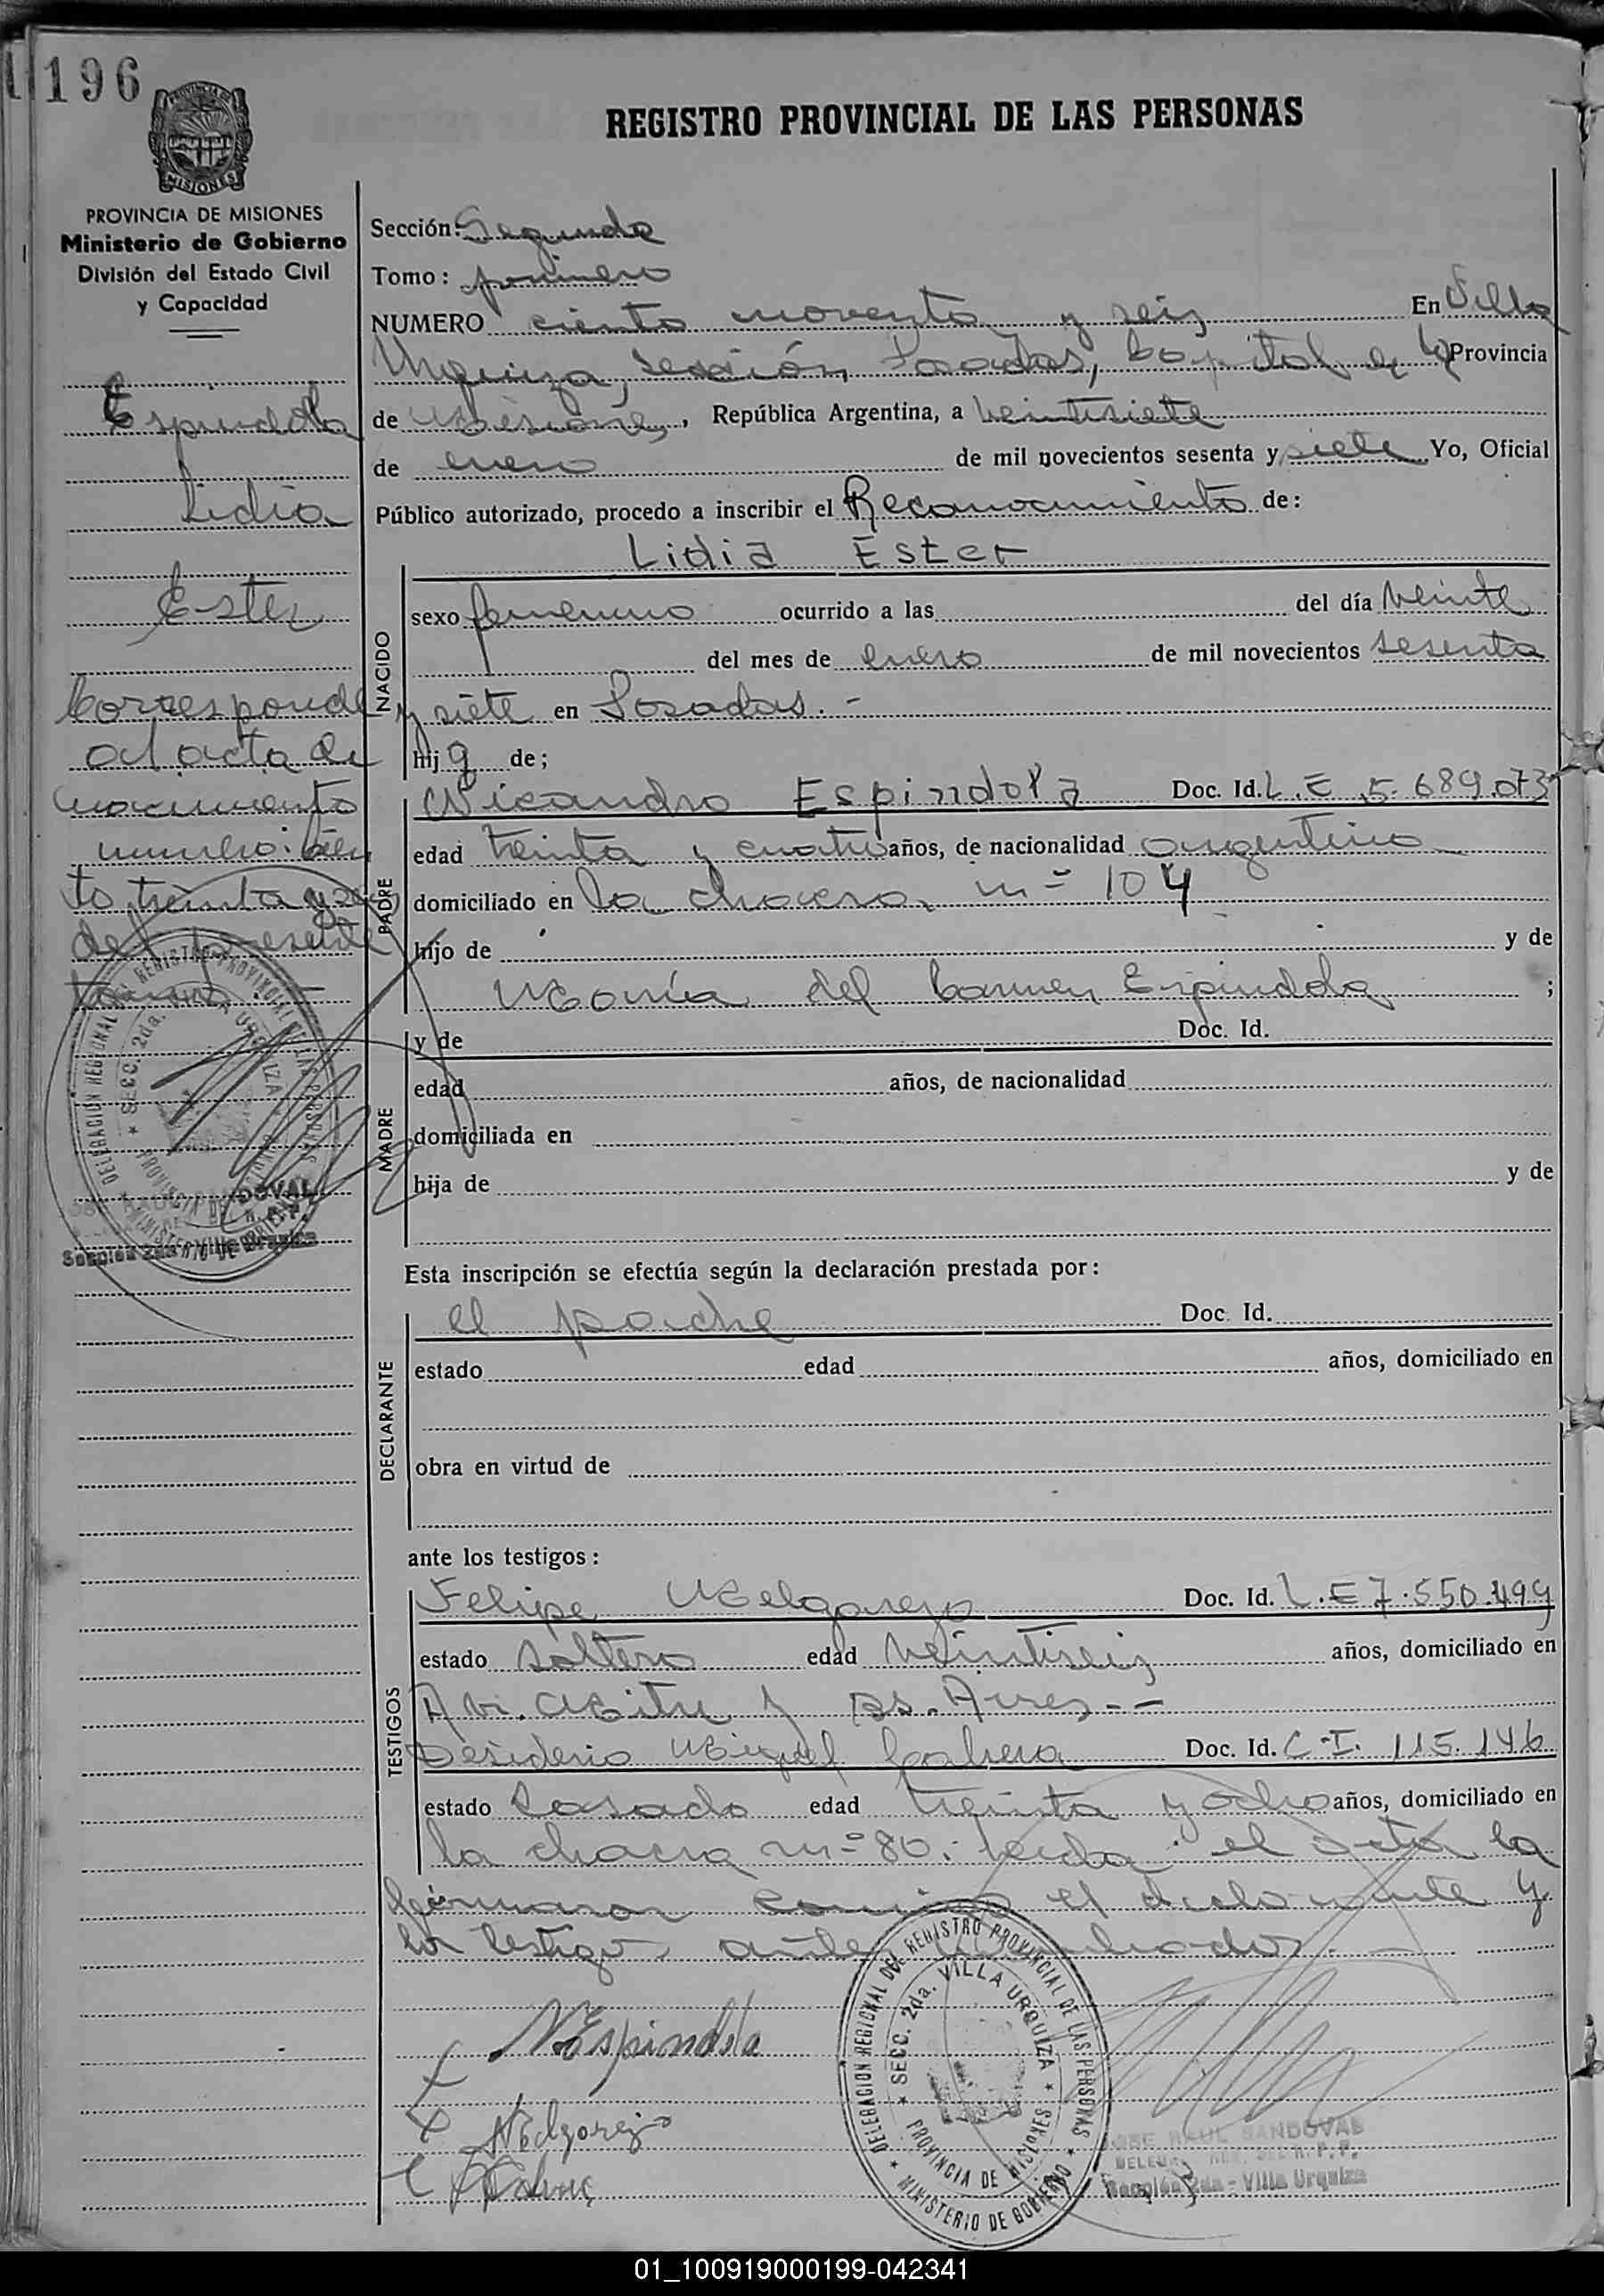 196
REGISTRO PROVINCIAL DE LAS PERSONAS
PROVINCIA DE MISIONES
Ministerio de Gobierno
División del Estado Civil
y Capacidad
Espindola
Lidia
Ester
Corresponde
al acta de
nacimiento
numero: cien
to treinta y seis
del presente
tomo
Sección: Segunda
Tomo: primero
NUMERO ciento noventa y seis En Villa
Urquiza, sección Posadas, Capital de la Provincia
de Misiones, República Argentina, a veintisiete
de enero de mil novecientos sesenta y siete Yo, Oficial
Público autorizado, procedo a inscribir el Reconocimiento de:
Lidia Ester
NACIDO
sexo femenino ocurrido a las del día veinte
del mes de enero de mil novecientos sesenta
y siete en Posadas.-
hija de;
PADRE
Nicandro Espindola Doc. Id. L.E. 5.689.073
edad treinta y cuatro años, de nacionalidad argentino
domiciliado en la chacra nº 104
hijo de y de
María del Carmen Espindola ;
MADRE
y de Doc. Id.
edad años, de nacionalidad
domiciliada en
hija de y de
Esta inscripción se efectúa según la declaración prestada por:
DECLARANTE
el padre Doc. Id.
estado edad años, domiciliado en
obra en virtud de
ante los testigos:
TESTIGOS
Felipe Melgarejo Doc. Id. L.E 7.550.499
estado soltero edad veintiseis años, domiciliado en
Av. Mitre y Bs. Aires.--
Desiderio Miguel Cabrera Doc. Id. C.I. 115.146
estado casado edad treinta y ocho años, domiciliado en
la chacra nº 80. Leida el acta la
firmaron conmigo el declarante y
los testigos antes nombrados.-
NEspindola
Melgarejo
DELEGACION REGIONAL DEL REGISTRO PROVINCIAL DE LAS PERSONAS
SECC. 2da. VILLA URQUIZA
PROVINCIA DE MISIONES
MINISTERIO DE GOBIERNO
JOSE RAUL SANDOVAL
Sección 2da - Villa Urquiza
01_100919000199-042341